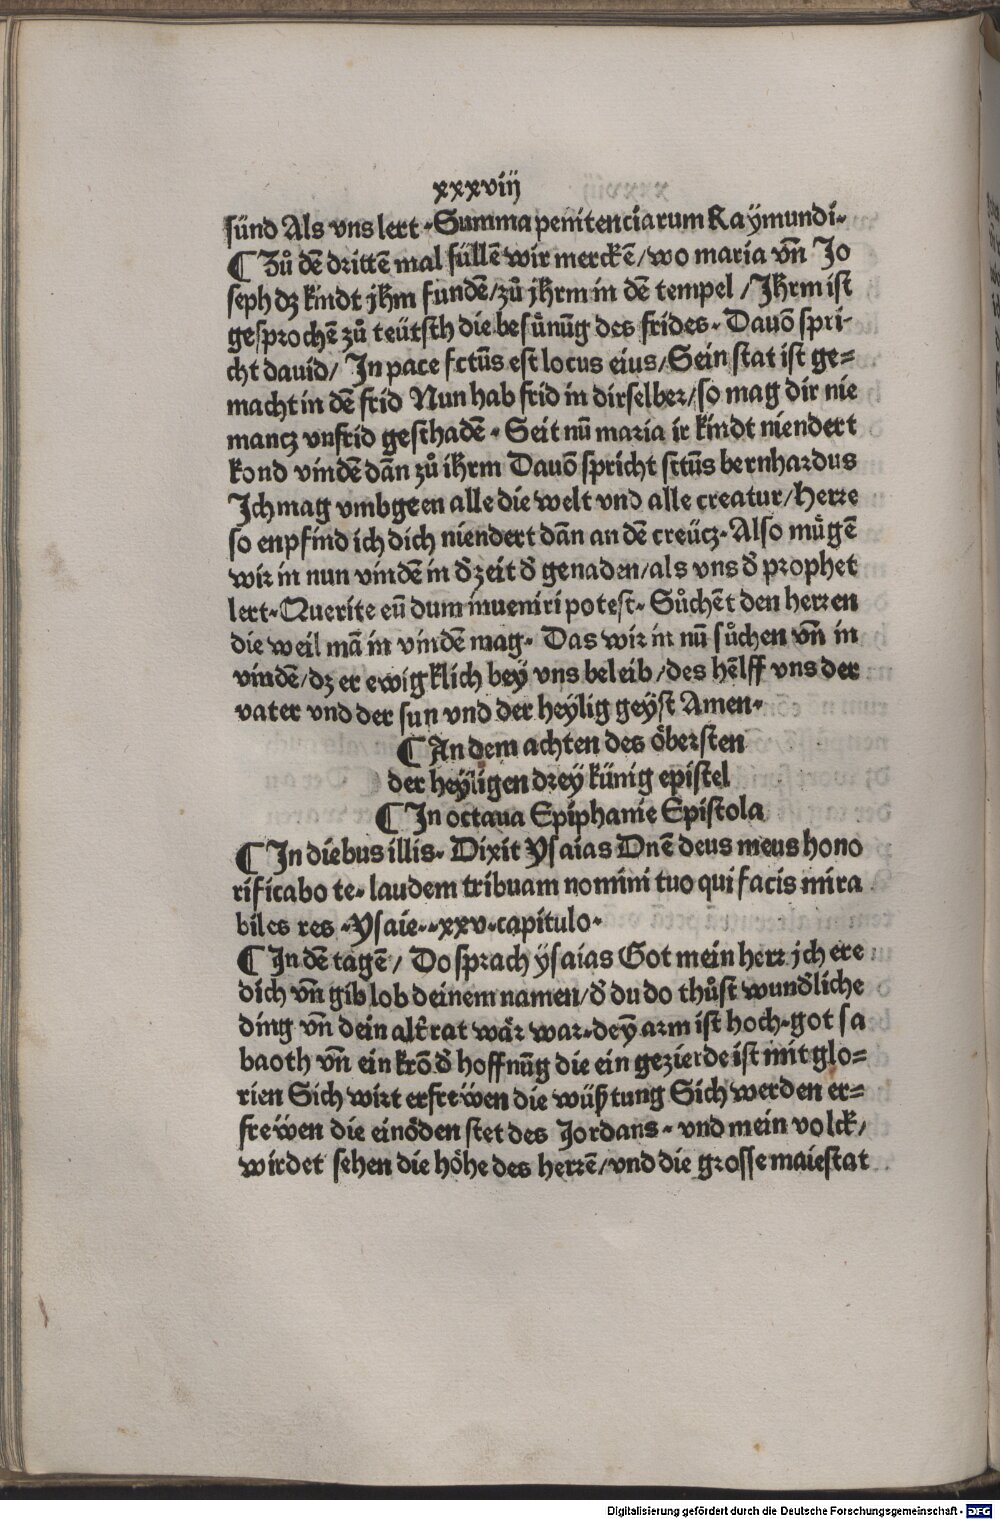 xxxviij
sünd Als vns lert · Summa penitenciarum Raÿmundi ·
¶ Zů dē drittē mal süllē wir merckē / wo maria vn̄ Jo
seph dz kindt jhm fundē / zů jhrm in dē tempel / Jhrm ist
gesprochē zů teütsch die besůnūg des frides · Dauō spri-
cht dauid / In pace fctūs est locus eius / Sein stat ist ge=
macht in dē frid Nun hab frid in dirselber / so mag dir nie
mancz vnfrid geschadē · Seit nū maria ir kindt niendert
kond vindē dān zů ihrm Dauō spricht sctūs bernhardus
Ich mag vmbgeen alle die welt vnd alle creatur / herre
so enpfind ich dich niendert dān an dē creücz · Also mügē
wir in nun vindē in d̄ zeit d̄ genaden / als vns d̄ prophet
lert · Querite eū dum inueniri potest · Sůchēt den herren
die weil mā in vindē mag · Das wir in nū sůchen vn̄ in
vindē / dz er ewigklich bey vns beleib / des hēlff vns der
vater vnd der sun vnd der heylig geyst Amen ·
¶ An dem achten des öbersten
der heyligen drey künig epistel
¶ In octaua Epiphanie Epistola
¶ In diebus illis · Dixit Ysaias Dnē deus meus hono
rificabo te · laudem tribuam nomini tuo qui facis mira
biles res · Ysaie · xxv · capitulo ·
¶ In dē tagē / Do sprach ÿsaias Got mein herr jch ere
dich vn̄ gib lob deinem namen / d̄ du do thůst wund̄liche
ding vn̄ dein alt̄ rat wär war · deȳ arm ist hoch · got sa
baoth vn̄ ein krō d̄ hoffnūg die ein gezierde ist mit glo=
rien Sich wirt erfreẅen die wüßtung Sich werden er=
freẅen die einöden stet des Jordans · vnd mein volck /
wirdet sehen die höhe des herrē / vnd die grosse maiestat
Digitalisierung gefördert durch die Deutsche Forschungsgemeinschaft - DFG